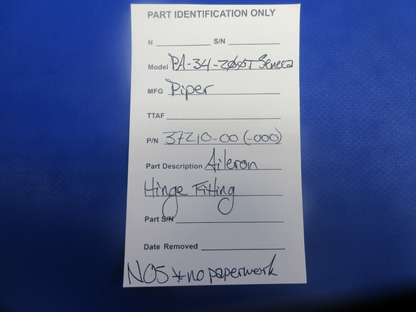 PART IDENTIFICATION ONLY
N S/N
Model PA-34-200T Seneca
MFG Piper
TTAF
P/N 37210-00 (-000)
Part Description Aileron
Hinge Fitting
Part S/N
Date Removed
NOS * no paperwork